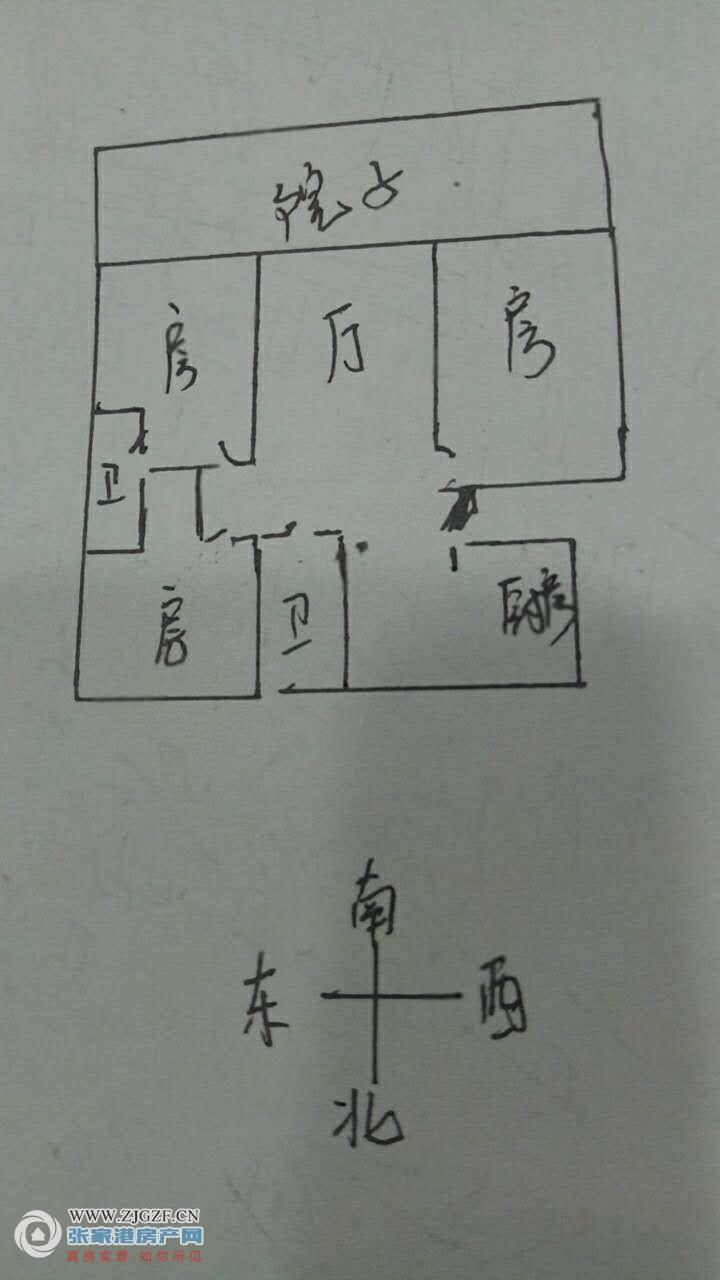 院子
房 厅 房
卫
房 卫 厨房
南
东 西
北
WWW.ZJGZF.CN
张家港房产网
真房实景·如你所见